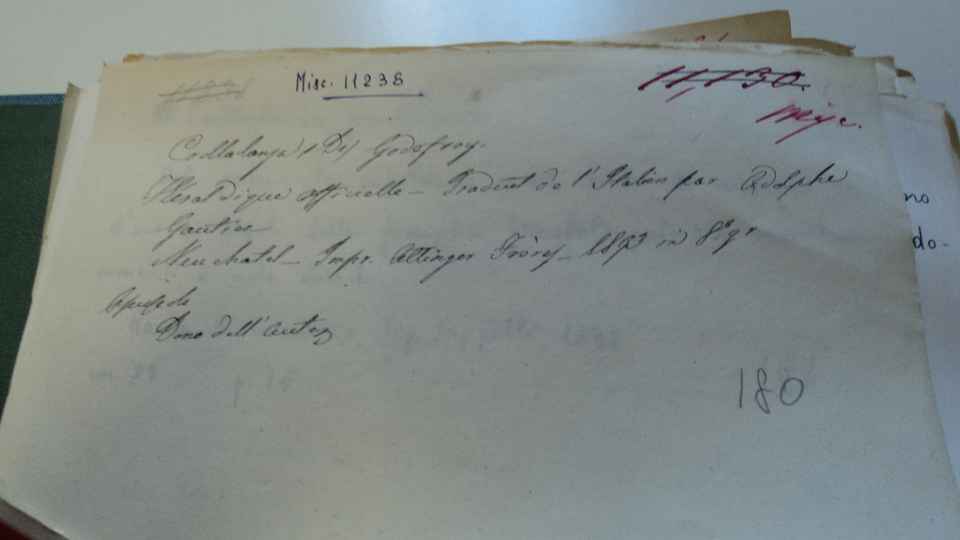 Misc. 11238
11,130.
Misc.
Crollalanza (Di) Godofroy.
Héraldique officielle – Traduit de l'Italien par Adolphe
Gautier
Neuchatel – Impr. Attinger Frères – 1893 in 8° gr
Dono dell'autore
180
no
do-